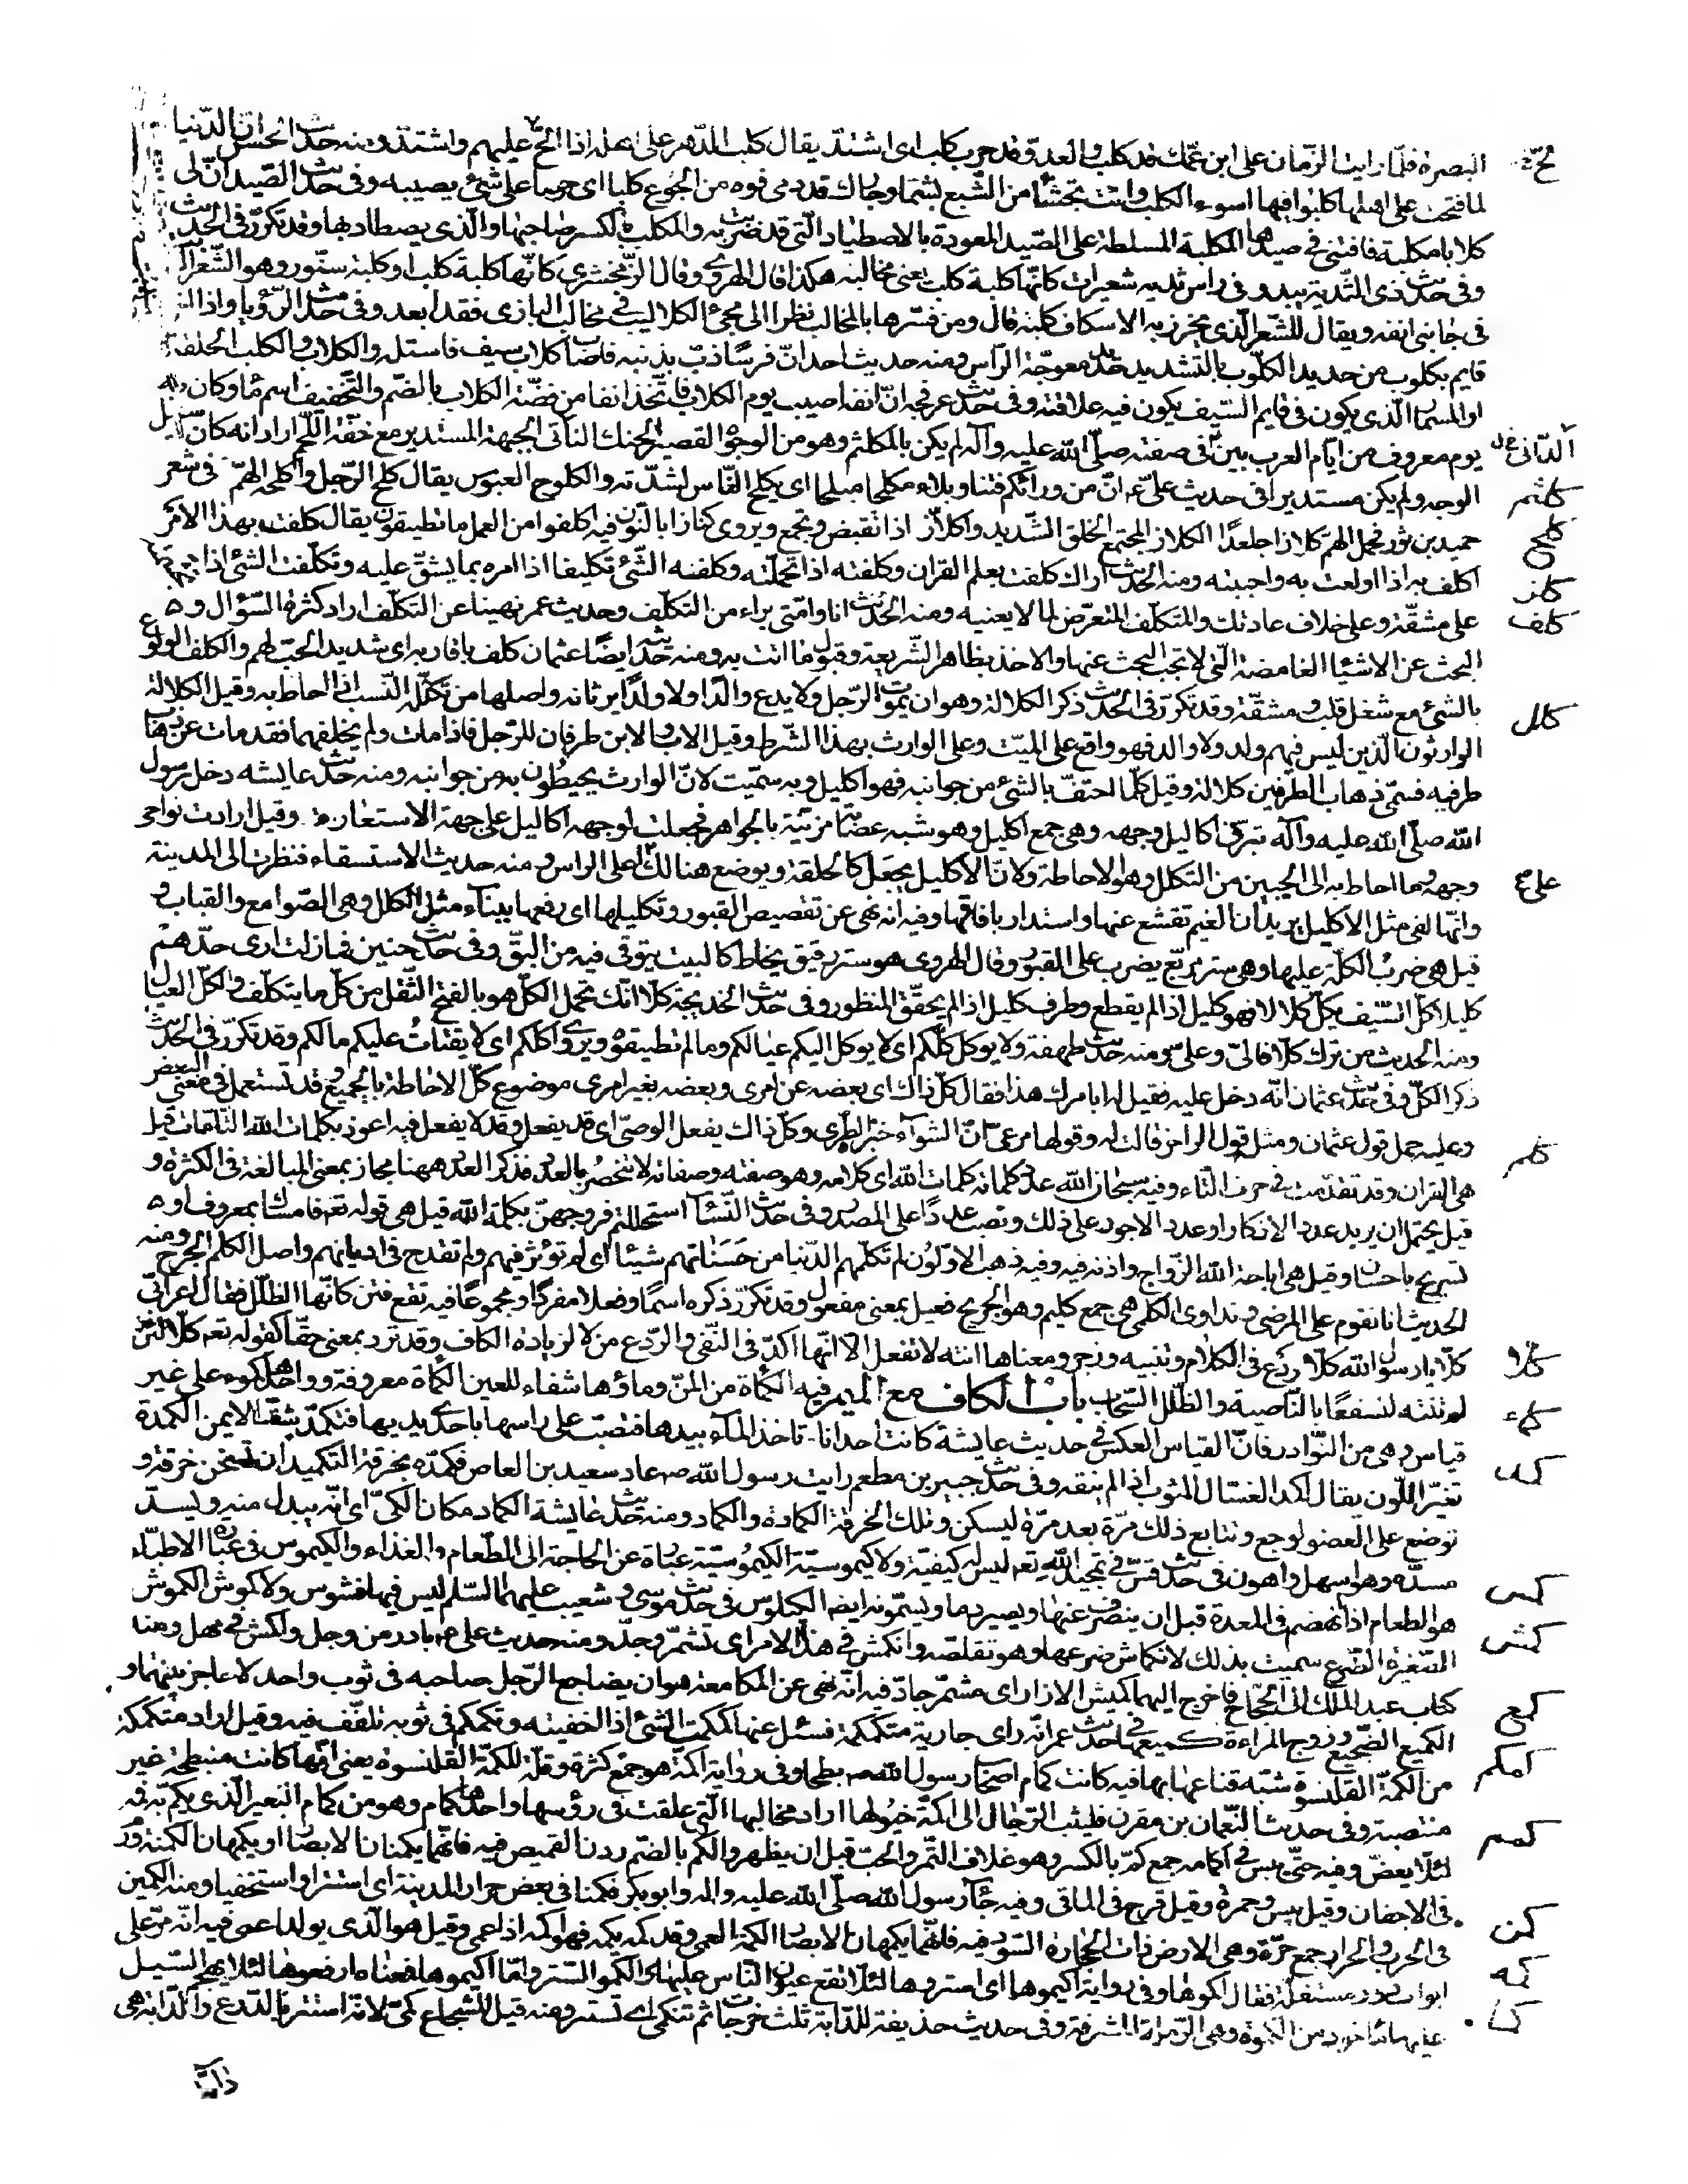 البصرة فلمّا رايت الزّمان على ابن عمّك قد كلب والعدوّ قد حرب كلب اى اشتدّ يقال كلب الدّهر على اهله اذا الحّ عليهم واشتدّ ومنه حديث الحسن انّ الدّنيا
لما فتحت على اهلها كلبوا فيها اسوء الكلب وانت تجشّأ من الشّبع بشما وجارك قد دمى فوه من الجوع كلبا اى حرصا على شئ يصيبه وفى حديث الصّيد انّ لى
كلابا مكلبة فافتنى فى صيدها المكلبة المسلطة على الصّيد المعودة بالاصطياد التى قد ضريت به والمكلب بالكسر صاحبها والّذى يصطاد بها وقد تكرّر فى الحديث
وفى حديث ذى الثّدية يبدو فى راس ثديه شعيرات كانّها كلبة كلب يعنى مخالبه هكذا قال الهروى وقال الزّمخشرى كانّها كلبة كلب او كلبة سنّور وهو الشّعر
فى جانبى انفه ويقال للشّعر الّذى يخرز به الاسكاف كلبة قال ومن فسّرها بالمخالب نظرا الى مجئ الكلاليب فى مخالب البازى فقد ابعد وفى حديث الرّؤيا واذا
قايم بكلوب من حديد الكلّوب بالتشديد حديدة معوجّة الرّاس ومنه حديث احد انّ فرسًا ذبّ بذنبه فاصاب كلاب سيف فاستله والكلاب والكلب الحلقة
او المسمار الّذى يكون فى قايم السّيف يكون فيه علاقته وفى حديث عرفجه انّ انفه اصيب يوم الكلاب فاتّخذ انفا من فضّة الكلاب بالضّم والتّخفيف اسم ماء وكان به
يوم معروف من ايّام العرب بين فى صفته صلّى الله عليه وآله لم يكن بالمكلثم وهو من الوجوه القصير الحنك الناتى الجبهة المستدير مع خفّة اللّحم اراد انه كان اسيل
الوجه ولم يكن مستديرا فى حديث علىّ ع انّ من ورائكم فتنا وبلاء مكلحا مبلحا اى يكلح النّاس لشدّته والكلوح العبوس يقال كلح الرّجل واكلحه الهمّ فى شعر
حميد بن ثور فحمل الهمّ كلازا جلعدًا الكلاز المجتمع الخلق الشّديد واكلأزّ اذا تقبض وتجمع ويروى كنازا بالنّون فيه اكلفوا من العمل ما تطيقون يقال كلفت بهذا الامر
اكلف به اذا اولعت به واحببته ومنه الحديث اراك كلفت بعلم القران وكلفته اذا تحمّلته وكلفه الشّئ تكليفا اذا امره بما يشقّ عليه وتكلّفت الشئ اذا
على مشقّة وعلى خلاف عادتك والمتكلّف المتعرّض لما لا يعنيه ومنه الحديث انا وامّتى براء من التكلّف وحديث عمر نهينا عن التكلّف اراد كثرة السّؤال و
البحث عن الاشيا الغامضة التى لا تجب البحث عنها والاخذ بظاهر الشّريعة وقبول ما اتت به ومنه حديثه ايضًا عثمان كلف باقاربه اى شديد الحبّ لهم والكلف الولوع
بالشئ مع شغل قلب ومشقّة وقد تكرّر فى الحديث ذكر الكلالة وهو ان يموت الرّجل ولا يدع والدًا ولا ولدًا يرثانه واصلها من تكلّله النّسب اذا احاط به وقيل الكلالة
الوارثون الّذين ليس فيهم ولد ولا والد فهو واقع على الميّت وعلى الوارث بهذا الشّرط وقيل الاب والابن طرفان للرّجل فاذا مات ولم يخلفهما فقد مات عن ذهاب
طرفيه فسمّى ذهاب الطرفين كلالة وقيل كلّما احتفّ بالشئ من جوانبه فهو اكليل وبه سمّيت لانّ الوارث يحيطون به من جوانبه ومنه حديث عايشه دخل رسول
الله صلّى الله عليه وآله تبرق اكاليل وجهه وهى جمع اكليل وهو شبه عصابة مزيّنة بالجواهر فجعلت لوجهه اكاليل على جهة الاستعارة وقيل ارادت نواحى
وجهه وما احاط به الى الجبين من التكلل وهو الاحاطة ولانّ الاكليل يجعل كالحلقة ويوضع هنالك على الراس ومنه حديث الاستسقاء فنظرت الى المدينة
وانّها لفى مثل الاكليل يريد ان الغيم تقشع عنها واستدار بافاقها وفيه انه نهى عن تقصيص القبور وتكليلها اى رفعها ببناء مثل الكلل وهى الصّوامع والقباب و
قيل هى ضرب الكلّة عليها وهى ستر مربّع يضرب على القبور وقال الهروى هو ستر رقيق يخاط كالبيت يتوقّى فيه من البقّ وفى حديث حنين فما زلت ارى حدّهم
كليلا كلّ السّيف يكلّ كلالا فهو كليل اذا لم يقطع وطرف كليل اذا لم يحقّق المنظور وفى حديث الخديجة كلّا انّك تحمل الكلّ هو بالفتح الثّقل من كلّ ما يتكلّف والكلّ العيال
ومنه الحديث من ترك كلّا فالىّ وعلىّ ومنه حديث طهفة ولا يوكل كلّكم اى لا يوكل اليكم عيالكم وما لم تطيقوه ويروى اكلكم اى لا يقتات عليكم مالكم وقد تكرّر فى الحديث
ذكر الكلّ وفى حديث عثمان انّه دخل عليه فقيل له ابامرك هذا فقال كلّ ذاك اى بعضه عن امرى وبعضه بغير امرى موضوع كلّ الاحاطة بالجميع وقد تستعمل فى معنى البعض
وعليه حمل قول عثمان ومثل قول الراجز قالت له وقولها مرعىّ انّ الشّواء خيره الطّرى وكلّ ذاك يفعل الوصىّ اى قد يفعل وقد لا يفعل فيه اعوذ بكلمات الله التّامّات قيل
هى القران وقد تقدّمت فى حرف التّاء وفيه سبحان الله عدد كلماته كلمات الله اى كلامه وهو صفته وصفاته لا تنحصر بالعدد فذكر العدد ههنا مجاز بمعنى المبالغة فى الكثرة و
قيل يحتمل ان يريد عدد الاذكار او عدد الاجور على ذلك ونصب عددًا على المصدر وفى حديث النّسا استحللتم فروجهنّ بكلمة الله قيل هى قوله تعه فامساك بمعروف او
تسريح باحسان وقيل هى اباحة الله الزّواج واذنه فيه وفيه ذهب الاوّلون لم تكلّمهم الدّنيا من حسناتهم شيئا اى لم تؤثر فيهم ولم تقدح فى اديانهم واصل الكلم الجرح ومنه
الحديث انا نقوم على المرضى ونداوى الكلمى هى جمع كليم وهو الجريح فعيل بمعنى مفعول وقد تكرّر ذكره اسمًا وفعلا مفردًا ومجموعًا فيه تقع فتن كانّها الظّلل فقال اعرابىّ
كلّا يا رسول الله كلّا ردع فى الكلام وتنبيه وزجر ومعناها انته لا تفعل الّا انّها اكدّ فى النّفى والرّدع من لا لزيادة الكاف وقد ترد بمعنى حقّا كقوله تعه كلّا لئن
لم تنته لنسفعًا بالنّاصية والظّلل السّحاب باب الكاف مع الميم فيه الكمأة من المنّ وماؤها شفاء للعين الكمأة معروفة وواحدها كموء على غير
قياس وهى من النّوادر فانّ القياس العكس فى حديث عايشة كانت احدانا تاخذ الماء بيدها فتصبّ على راسها باحدى يديها فتكمد شقّها الايمن الكمدة
تغيّر اللّون يقال اكمد الغسّال الثوب اذا لم ينقه وفى حديث جبير بن مطعم رايت رسول الله ص عاد سعيد بن العاص فكمّده بخرقة التكميد ان تسخن خرقة و
توضع على العضو لوجع وتتابع ذلك مرّة بعد مرّة ليسكن وتلك الخرقة الكمادة والكماد ومنه حديث عايشة الكماد مكان الكىّ اى انّه يبدل منه ويسدّ
مسدّه وهو اسهل واهون فى حديث قسّ فى تمجيد الله تعه ليس له كيفيّة ولا كيموسيّة الكيموسيّة عبارة عن الحاجة الى الطّعام والغذاء والكيموس فى عبارة الاطبّاء
هو الطعام اذا انهضم فى المعدة قبل ان ينصرف عنها ويصير دما ويسمّونه ايضا الكيلوس فى حديث موسى وشعيب عليهما السّلم ليس فيها فشوش ولا كموش الكموش
الصّغيرة الضّرع سميت بذلك لانكماش ضرعها وهو تقلصه وانكمش فى هذا الامر اى تشمّر وجدّ ومنه حديث على ع بادر من وجل واكمش فى مهل ومنه
كتاب عبد الملك الى الحجّاج فاخرج اليهما كميش الازار اى مشمّر جادّ فيه انّه نهى عن المكامعة هو ان يضاجع الرّجل صاحبه فى ثوب واحد لا حاجز بينهما و
الكميع الضّجيع وزوج المراءة كميعها فى حديث عمر انّه راى جارية متكمكمة فسئل عنها كمكمت الشئ اذا اخفيته وتكمكم فى ثوبه تلفّف فيه وقيل اراد متكمكمة
من الكمّة القلنسوة شبّه قناعها بها فيه كانت كمام اصحاب رسول الله ص بطحا وفى رواية اكمّة هو جمع كثرة وقلّة للكمّة القلنسوة يعنى انّها كانت منبطحة غير
منتصبة وفى حديث النّعمان بن مقرن فليثب الرّجال الى اكمّة خيولها اراد مخاليها الّتى علقت فى رؤسها واحدها كمام وهو من كمام البعير الّذى يكم به فمه
لئلّا يعضّ وفيه حتّى يبس فى اكمامه جمع كمّ بالكسر وهو غلاف الثّمر والحبّ قبل ان يظهر والكم بالضّم ردن القميص فيه فانّهما يكمنان الابصار او يكمهان الكمنة ورم
فى الاجفان وقيل يبس وحمرة وقيل قرح فى الماقى وفيه جاء رسول الله صلّى الله عليه واله وابو بكر فكمنا فى بعض حرار المدينة اى استترا واستخفيا ومنه الكمين
فى الحرب والحرار جمع حرّة وهى الارض ذات الحجارة السّود فيه فانّهما يكمهان الابصار الكمه العمى وقد كمه يكمه فهو اكمه اذا عمى وقيل هو الّذى يولد اعمى فيه انّه مرّ على
ابواب دور مستفلة فقال اكموها وفى رواية اكيموها اى استروها لئلّا تقع عيون النّاس عليها والكمو السّتر وامّا اكيموها فمعناه ارفعوها لئلّا يهجم السّيل
عليها ماخوذ من الكومة وهى الرّملة المشرفة وفى حديث حذيفة للدّابة ثلث خرجات ثم تنكمى اى تستتر ومنه قيل للشجاع كمىّ لانّه استتر بالدّرع والدّابة هى
كلثم
كلح
كلز
كلف
كلل
كلم
كلا
كماء
كمد
كمس
كمش
كمع
كمكم
كمم
كمن
كمه
كما
دابة